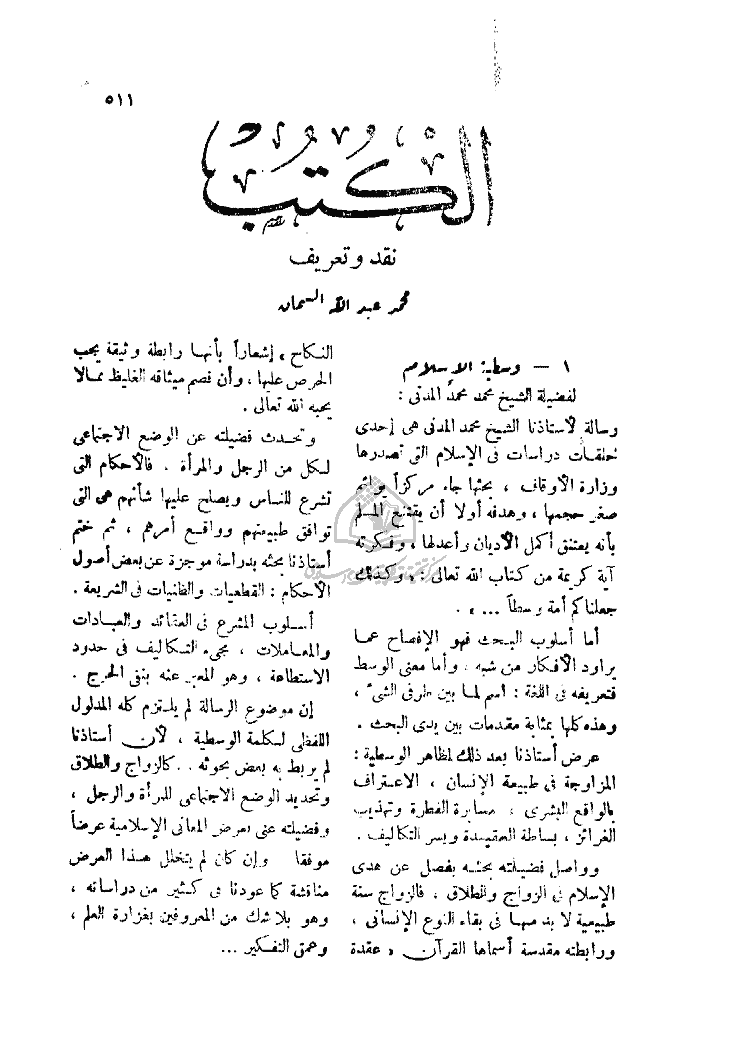 ٥١١
الكتب
نقد وتعريف
محمد عبد الله السمان
١ — وسطية الإسلام
لفضيلة الشيخ محمد محمد المدنى :
رسالة لأستاذنا الشيخ محمد المدنى هى إحدى
حلقات دراسات فى الإسلام التى تصدرها
وزارة الأوقاف ، بحثها جاء مركزاً يوائم
صغر حجمها ، وهدفه أولا أن يقتنع المسلم
بأنه يعتنق أكمل الأديان وأعدلها ، وفكرته
آية كريمة من كتاب الله تعالى : « وكذلك
جعلناكم أمة وسطاً ... » .
أما أسلوب البحث فهو الإفصاح عما
يراود الأفكار من شبه . وأما معنى الوسط
فتعريفه فى اللغة : اسم لما بين طرفى الشىء ،
وهذه كلها بمثابة مقدمات بين يدى البحث .
عرض أستاذنا بعد ذلك لمظاهر الوسطية :
المزاوجة فى طبيعة الإنسان ، الاعتراف
بالواقع البشرى ، مسايرة الفطرة وتهذيب
الغرائز ، بساطة العقيدة ويسر التكاليف .
وواصل فضيلته بحثه بفصل عن هدى
الإسلام فى الزواج والطلاق ، فالزواج سنة
طبيعية لا بد منها فى بقاء النوع الإنسانى ،
ورابطته مقدسة أسماها القرآن « عقدة
النكاح » إشعاراً بأنها رابطة وثيقة يجب
الحرص عليها ، وأن فصم ميثاقه الغليظ مما لا
يحبه الله تعالى .
وتحدث فضيلته عن الوضع الاجتماعى
لكل من الرجل والمرأة . فالأحكام التى
تشرع للناس ويصلح عليها شأنهم هى التى
توافق طبيعتهم وواقع أمرهم ، ثم ختم
أستاذنا بحثه بدراسة موجزة عن بعض أصول
الأحكام : القطعيات والظنيات فى الشريعة .
أسلوب المشرع فى العقائد والعبادات
والمعاملات ، مجىء التكاليف فى حدود
الاستطاعة ، وهو المعبر عنه بنفى الحرج .
إن موضوع الرسالة لم يلتزم كله المدلول
اللفظى لكلمة الوسطية ، لأن أستاذنا
لم يربط به بعض بحوثه .. كالزواج والطلاق
وتحديد الوضع الاجتماعى للمرأة والرجل ،
وفضيلته عنى بعرض المعانى الإسلامية عرضاً
موفقا وإن كان لم يتخلل هذا العرض
مناقشة كما عودنا فى كثير من دراساته ،
وهو بلا شك من المعروفين بغزارة العلم ،
وعمق التفكير ...